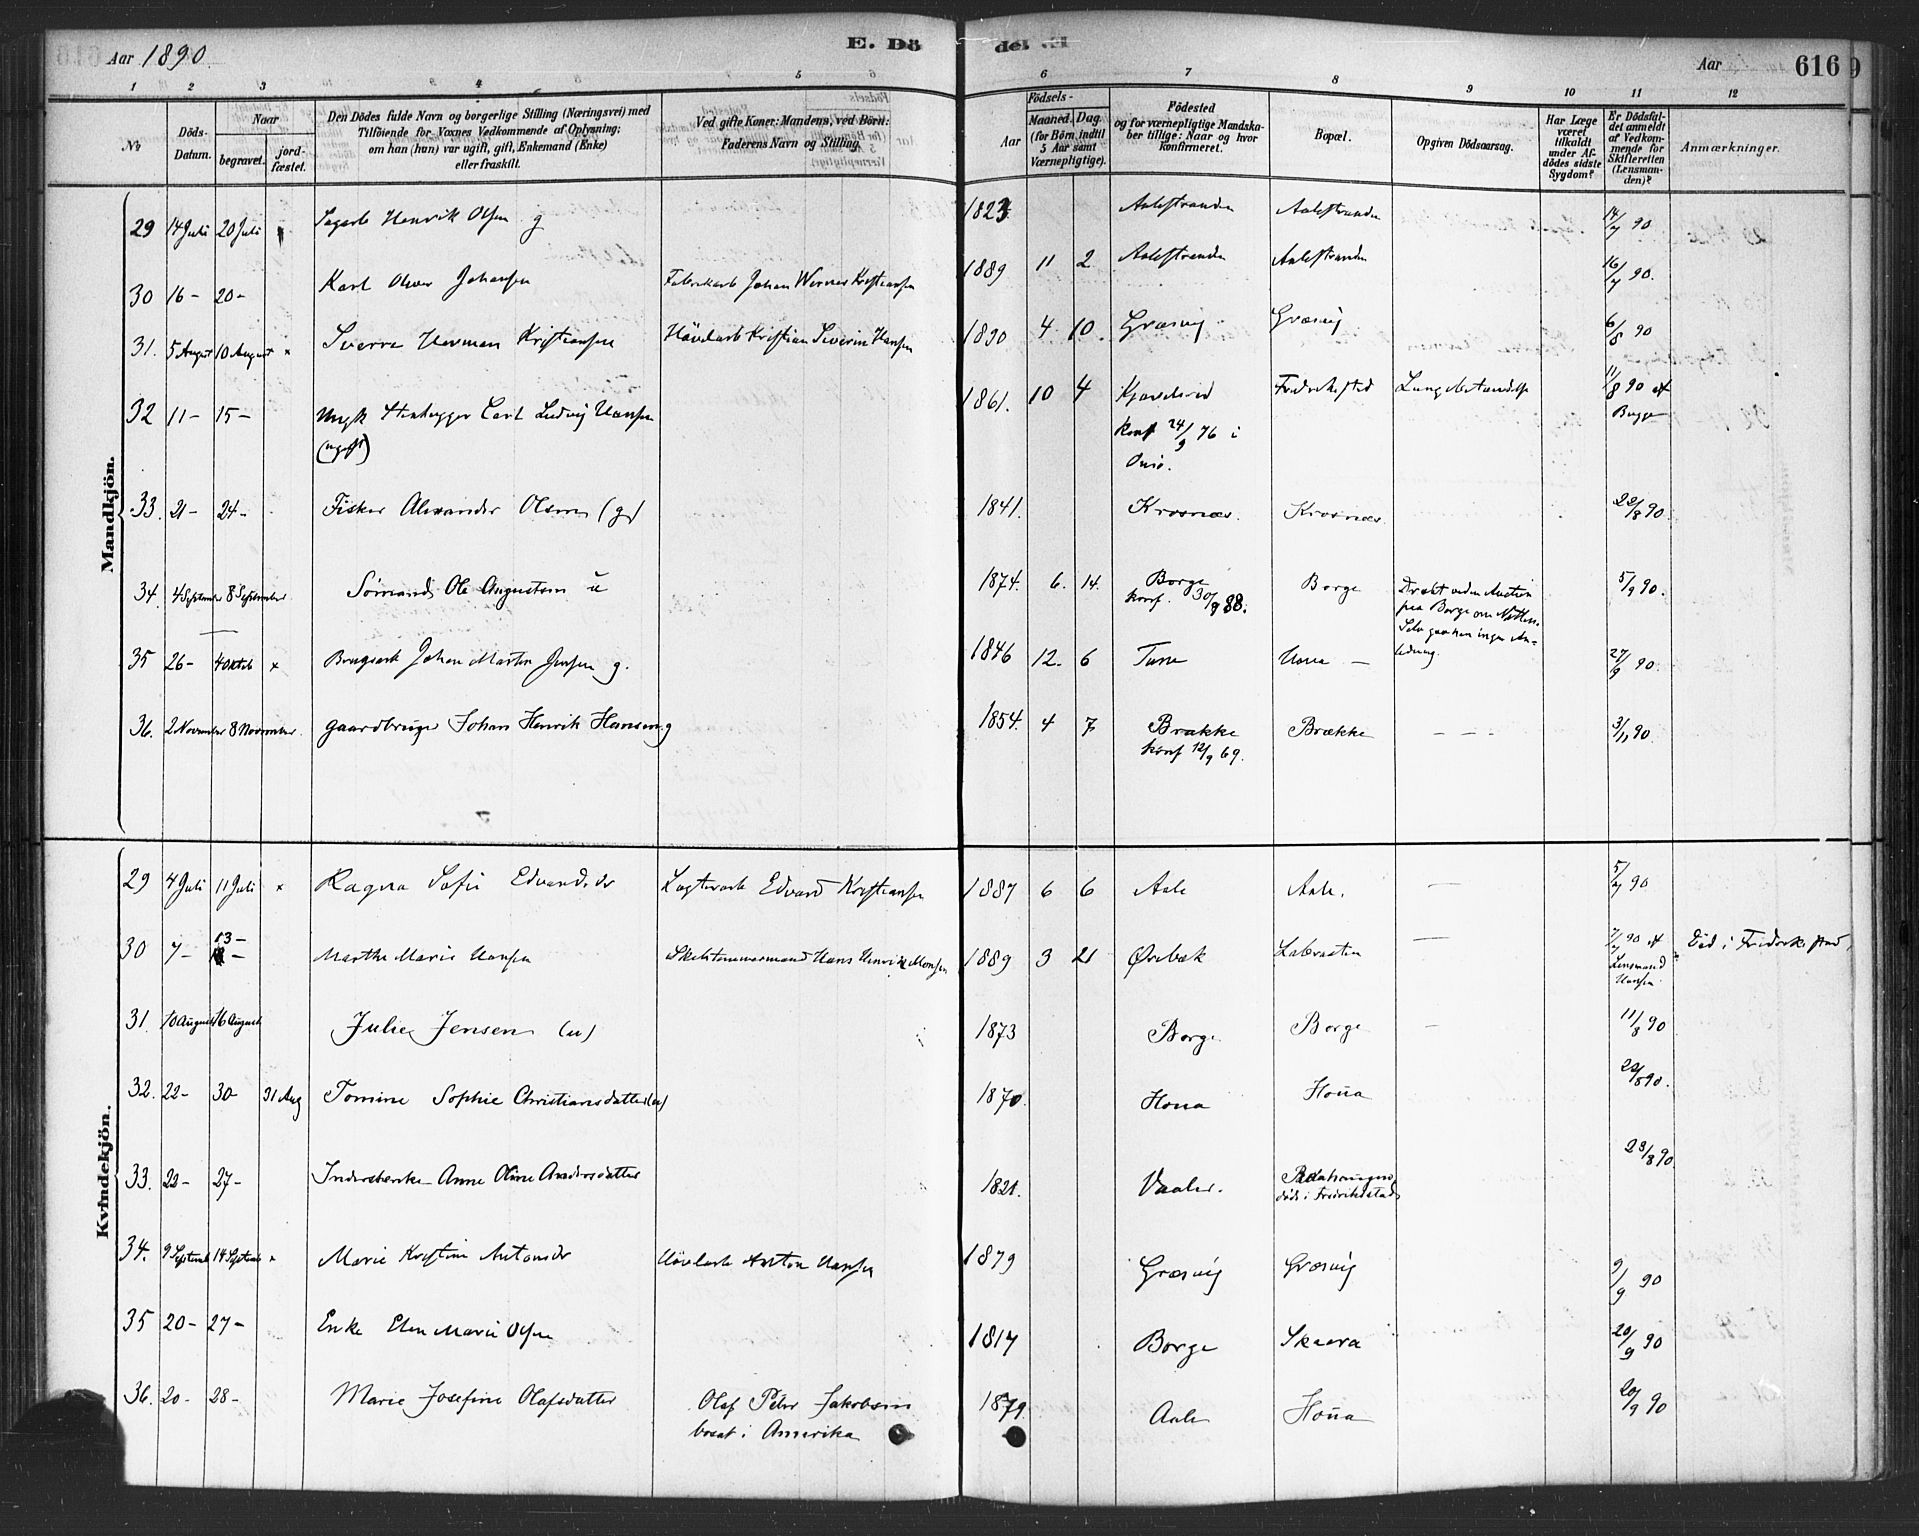 Aar 1890.
E. Dö
de .H
Aar
616
9
1 2 3 4 5 6 7 8 9 10 11 12
No
Döds-Datum.
Naar
begravet.
jord-fæstet.
Den Dödes fulde Navn og borgerlige Stilling (Næringsvei) med
Tilföiende for Voxnes Vedkommende af Oplysning;
om han (hun) var ugift, gift, Enkemand (Enke)
eller fraskilt.
Ved gifte Koner: Mandens, ved Börn:
Faderens Navn og Stilling.
Födsels-
Aar
Maaned. Dag.
(for Börn indtil
5 Aar samt
Værnepligtige).
Födested
og for værnepligtige Mandska-
ber tillige: Naar og hvor
konfirmeret.
Bopæl.
Opgiven Dödsaarsag.
Har Læge
været
tilkaldt
under Af-
dödes sidste
Sygdom?
Er Dödsfal-
det anmeldt
af Vedkom-
mende for
Skifteretten
(Lensman-
den)?
Anmærkninger.
Mandkjön.
29 14 Juli 20 Juli Henrik Olsen g 1823 Aalestranden Aalestranden 14/7 90
30 16 - 20 - Karl Oliver Johansen Fabrikarb Johan Werner Kristiansen 1889 11 2 Aalestranden Aalestranden 16/7 90.
31. 5 August 10 August x Sverre Herman Kristiansen Hövlarb Kristian Severin Hansen 1890 4 10. Græsvig Græsvig 6/8 90
32 11 - 15 - Stenhugger Carl Ludvig Hansen 1861. 10 4 Fredrikstad Lungebetændelse 11/8 90 af
(ugift) konf 24/9 76 i Bugge
Onsö.
33. 21 - 24 - Fisker Alexander Olsen (g) 1841. Krosnæs. Krosnæs. 22/8 90.
34. 4 September 8 September Sömand Ole Augustsen u 1874. 6. 14. Borge Borge 5/9 90.
konf. 30/9 88.
35 26 - 4 Oktob x Brugsarb Johan Martin Jensen g. 1846 12. 6 Tune Houa - 27/9 90.
36. 2 November 8 November. Gaardbruger Johan Henrik Hansen g 1854. 4 7 Brække Brække - - - 3/11 90.
konf 12/9 69.
Kvindekjön.
29 4 Juli 11 Juli x Ragna Sofie Edvardsdr Edvard Kristiansen 1887 6 6 Aale Aale. - 5/7 90
30 7 - 13 - Marthe Marie Hansen Skibstømmermand Hans Henrik Monsen 1889 3 21 Ørebæk - 7/7 90 af Død i Fredrikstad.
Lensmand
Hansen
31. 10 August 16 August Julie Jensen (u) 1873 Borge Borge - 11/8 90
32. 22 - 30 - 31 Aug Tomine Sophie Christiansdatter (u) 1870. Houa Houa 22/8 90.
33. 22 - 27 - Anne Oline Andersdatter 1821. Vaaler. død i Fredrikstad 23/8 90
34. 9 Septemb 14 Septemb x Marie Kristine Antonsdr Hövlarb Anton Hansen 1879 Græsvig Græsvig 9/9 90
35 20 - 27 - Enke Elen Marie Olsen 1817 Borge Skaara 20/9 90
36. 20 - 28 - Marie Josefine Olafsdatter Olaf Peter Jakobsen 1879. Aale Houa 20/9 90
bosat i Amerika